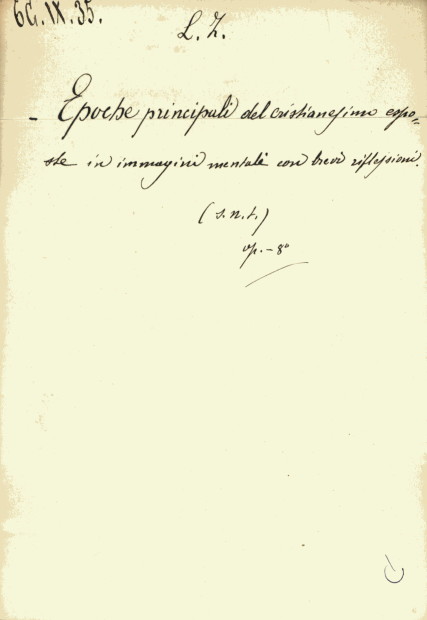 6G.IX.35.
L. Z.
- Epoche principali del cristianesimo espo-
ste in immagini mentali con brevi riflessioni.
(s.n.t.)
op. - 8º